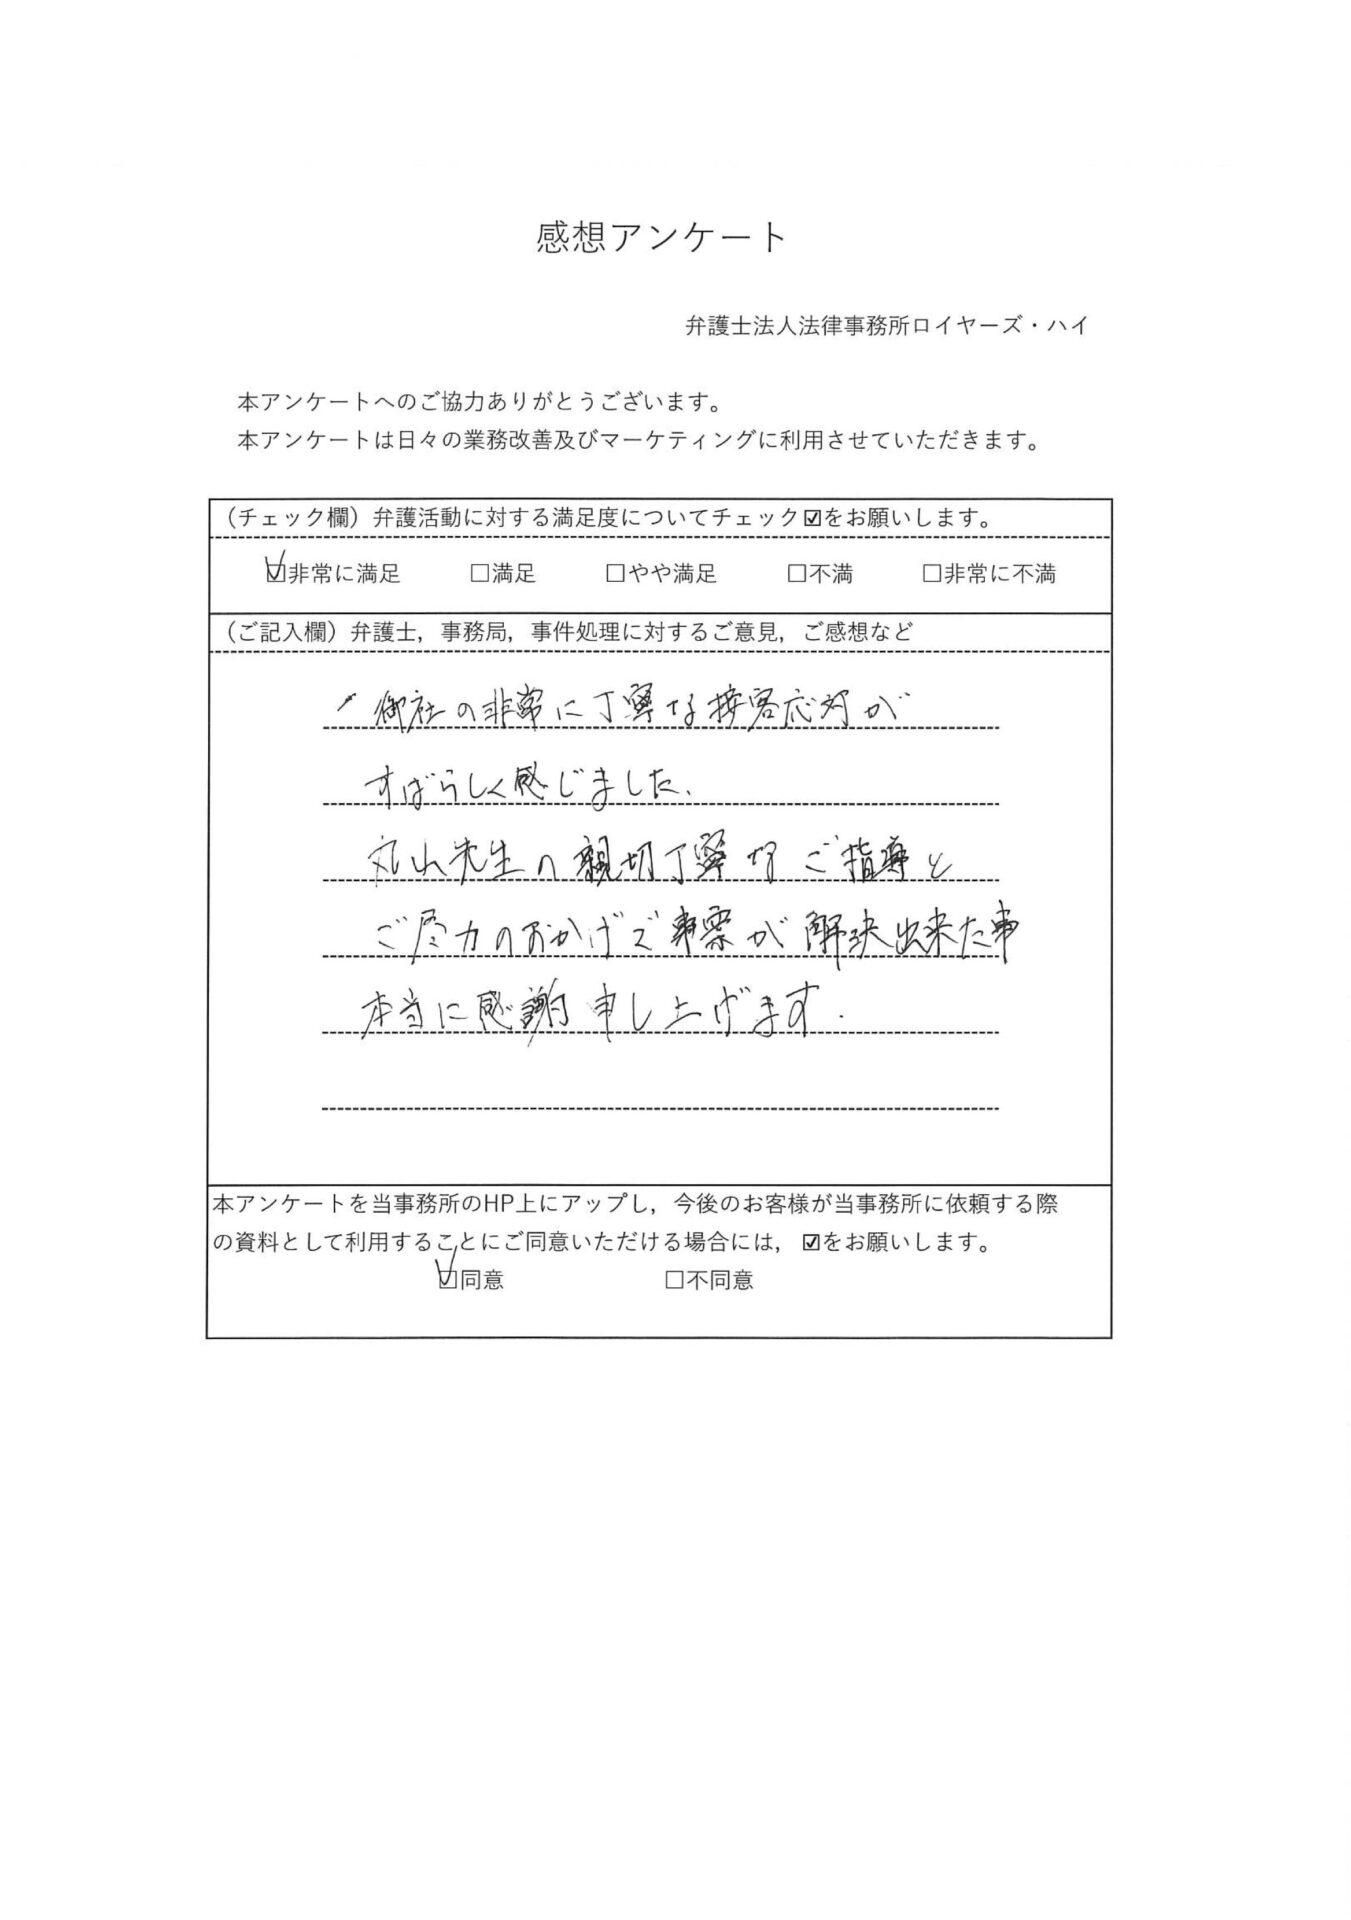 感想アンケート
弁護士法人法律事務所ロイヤーズ・ハイ
本アンケートへのご協力ありがとうございます。
本アンケートは日々の業務改善及びマーケティングに利用させていただきます。
（チェック欄）弁護活動に対する満足度についてチェック☑をお願いします。
☑非常に満足 □満足 □やや満足 □不満 □非常に不満
（ご記入欄）弁護士，事務局，事件処理に対するご意見，ご感想など
・御社の非常に丁寧な接客応対が
すばらしく感じました、
丸山先生の親切丁寧なご指導と
ご尽力のおかげで事案が解決出来た事
本当に感謝申し上げます.
本アンケートを当事務所のHP上にアップし，今後のお客様が当事務所に依頼する際
の資料として利用することにご同意いただける場合には，☑をお願いします。
☑同意 □不同意